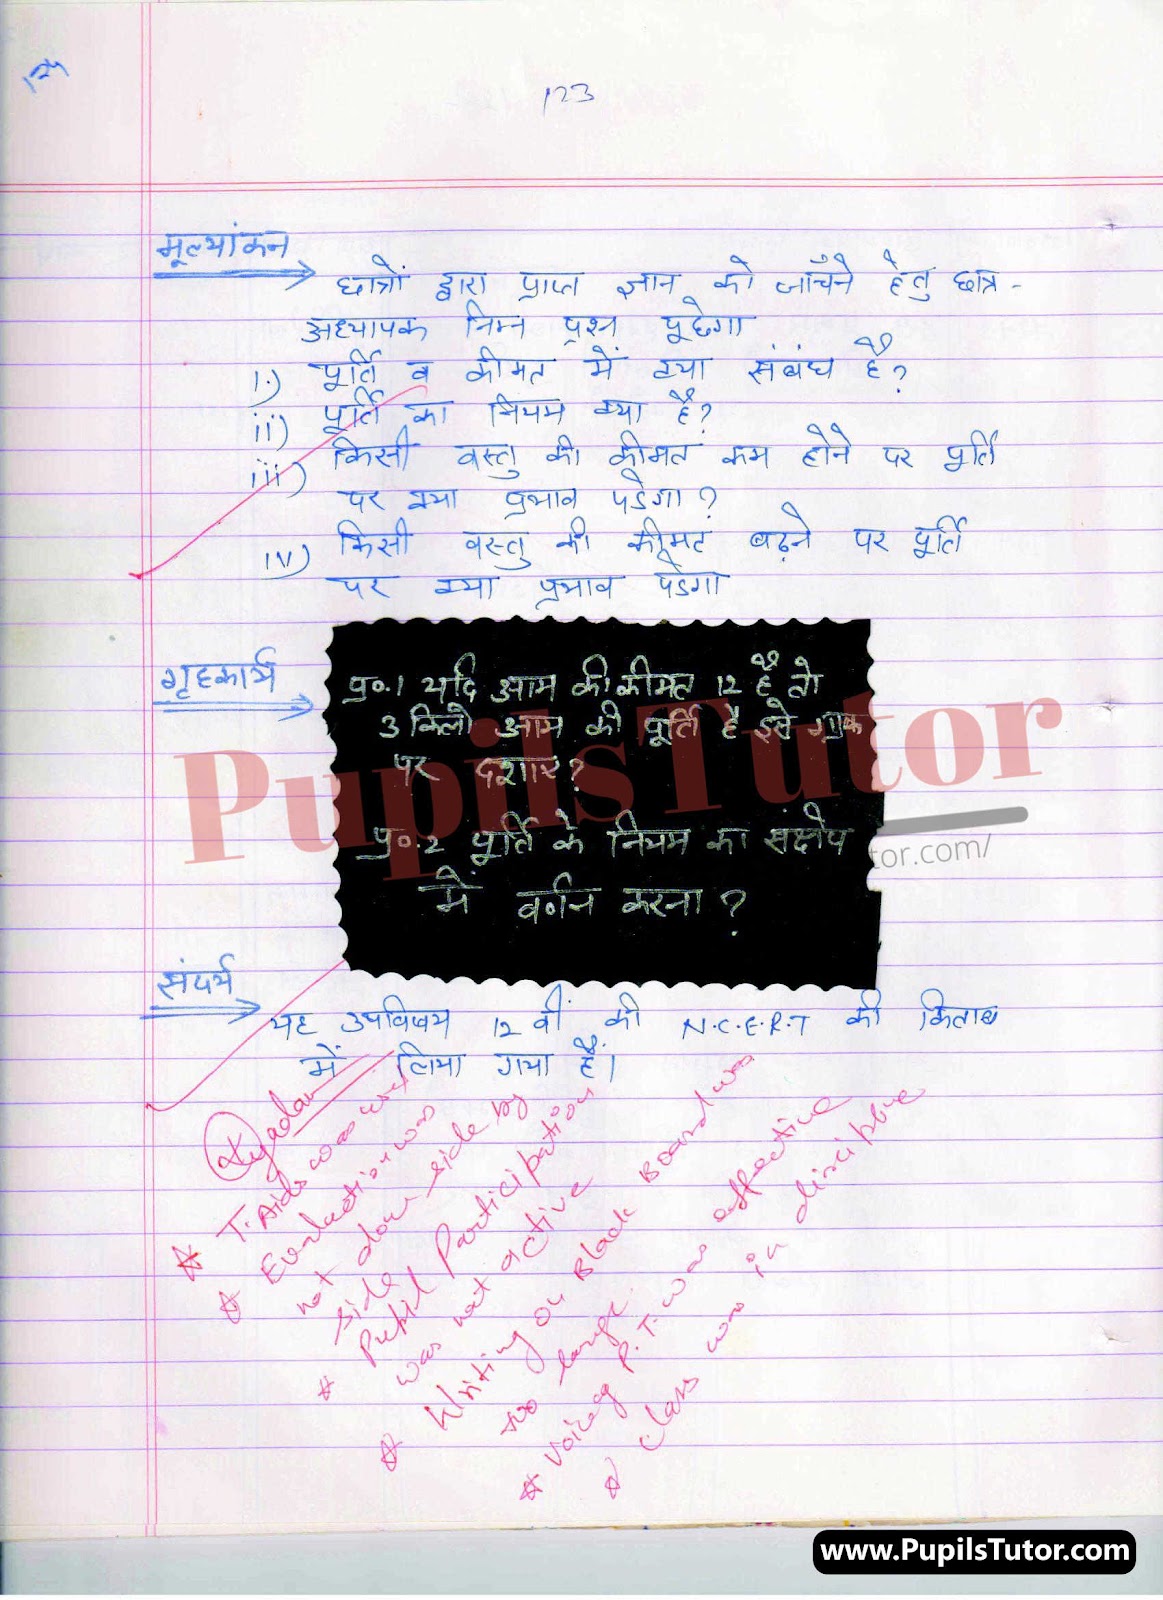 123
मूल्यांकन
छात्रों द्वारा प्राप्त ज्ञान को जाँचने हेतु छात्र-
अध्यापक निम्न प्रश्न पूछेगा
i.) पूर्ति व कीमत में क्या संबंध है?
ii) पूर्ति का नियम क्या है?
iii) किसी वस्तु की कीमत कम होने पर पूर्ति
पर क्या प्रभाव पडेगा?
iv) किसी वस्तु की कीमत बढ़ने पर पूर्ति
पर क्या प्रभाव पडेगा
गृहकार्य
प्र०.1 यदि आम की कीमत 12 है तो
3 किलो आम की पूर्ति है इसे ग्राफ
पर दर्शाए?
प्र०.2 पूर्ति के नियम का संक्षेप
में वर्णन करना?
PupilsTutor
tor.com/
संदर्भ
यह उपविषय 12 वीं की N.C.E.R.T की किताब
में लिया गया है।
T. Aids was
Evaluation was
not done side by
side
Pupil Participation
was not active
Writing on Black Board was
too large.
Voicing P.T. was effective
Class was in discipline
www.PupilsTutor.com